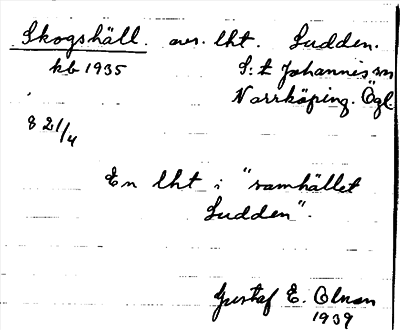 Skogshäll. avs. lht. Sudden.
kb 1935 S:t Johannes sn
Norrköping. Ögl.
8 21/4
En lht i "samhället
Sudden".
Gustaf E. Olman
1939